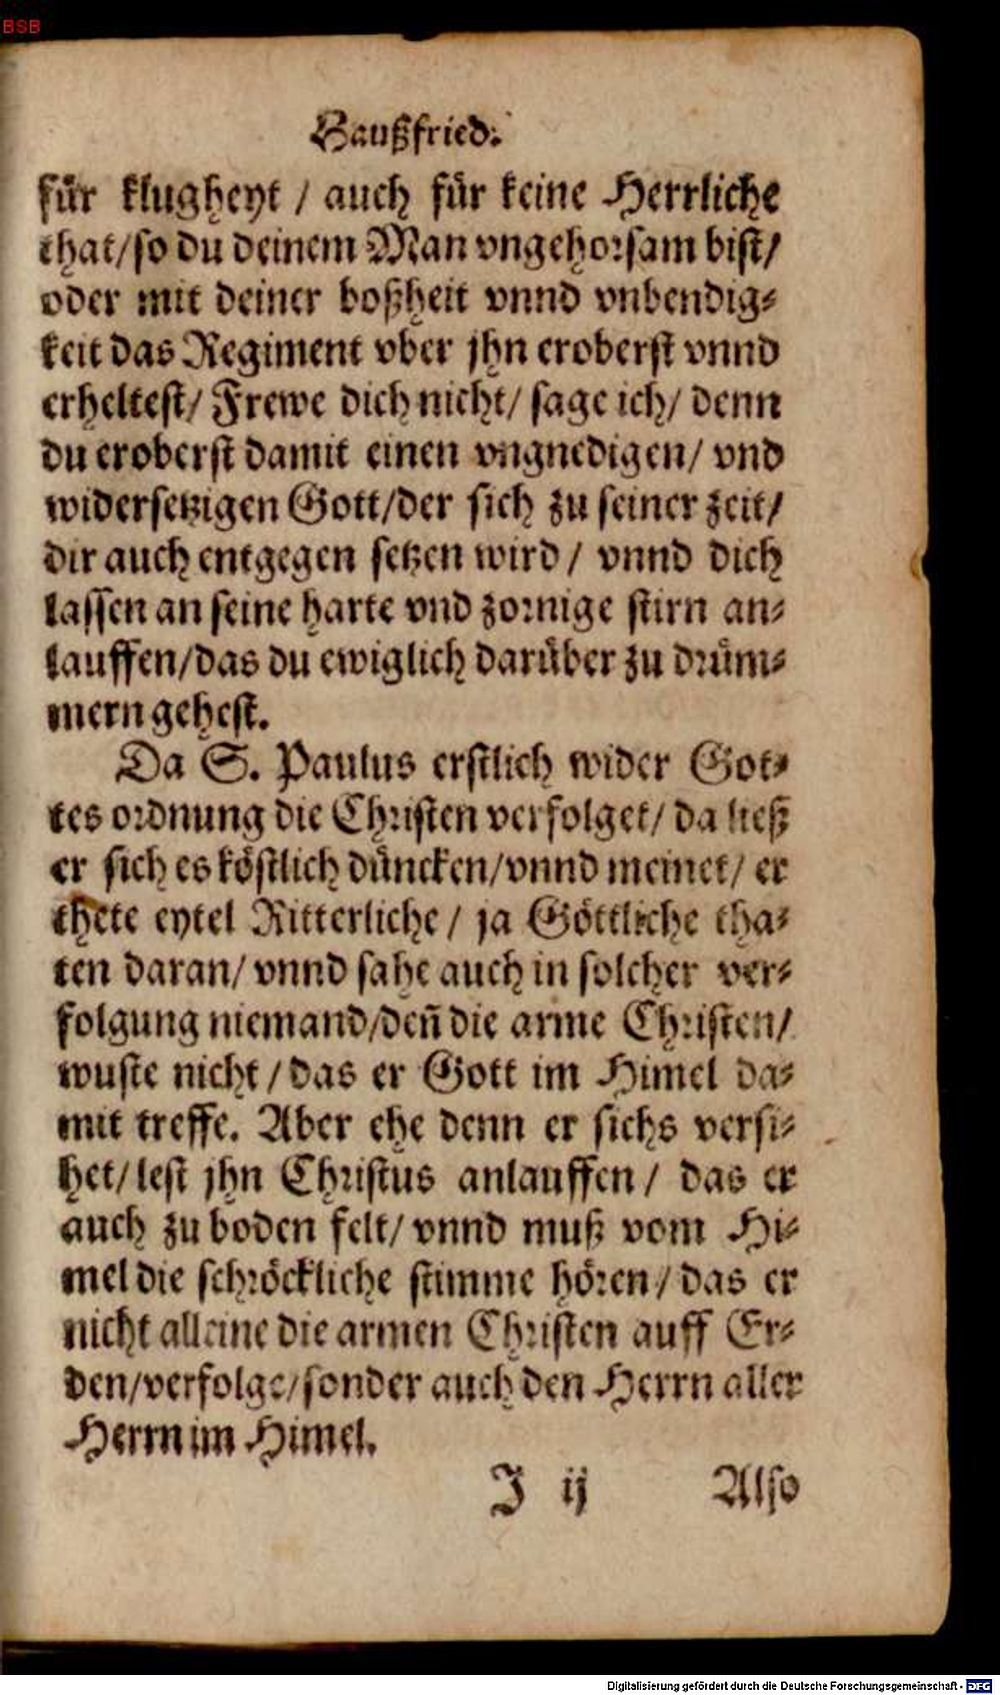 BSB
Haußfried.
für klugheyt / auch für keine Herrliche
that/so du deinem Man vngehorsam bist/
oder mit deiner boßheit vnnd vnbendig-
keit das Regiment vber jhn eroberst vnnd
erheltest/ Frewe dich nicht/ sage ich/ denn
du eroberst damit einen vngnedigen/ vnd
widersetzigen Gott/der sich zu seiner zeit/
dir auch entgegen setzen wird / vnnd dich
lassen an seine harte vnd zornige stirn an-
lauffen/das du ewiglich darüber zu drüm-
mern gehest.
Da S. Paulus erstlich wider Got-
tes ordnung die Christen verfolget/ da ließ
er sich es köstlich düncken/vnnd meinet/ er
thete eytel Ritterliche / ja Göttliche tha-
ten daran/ vnnd sahe auch in solcher ver-
folgung niemand/deñ die arme Christen/
wuste nicht / das er Gott im Himel da-
mit treffe. Aber ehe denn er sichs versi-
het/ lest jhn Christus anlauffen / das er
auch zu boden felt/ vnnd muß vom Hi-
mel die schröckliche stimme hören / das er
nicht alleine die armen Christen auff Er-
den/verfolge/sonder auch den Herrn aller
Herrn im Himel.
J ij Also
Digitalisierung gefördert durch die Deutsche Forschungsgemeinschaft - DFG